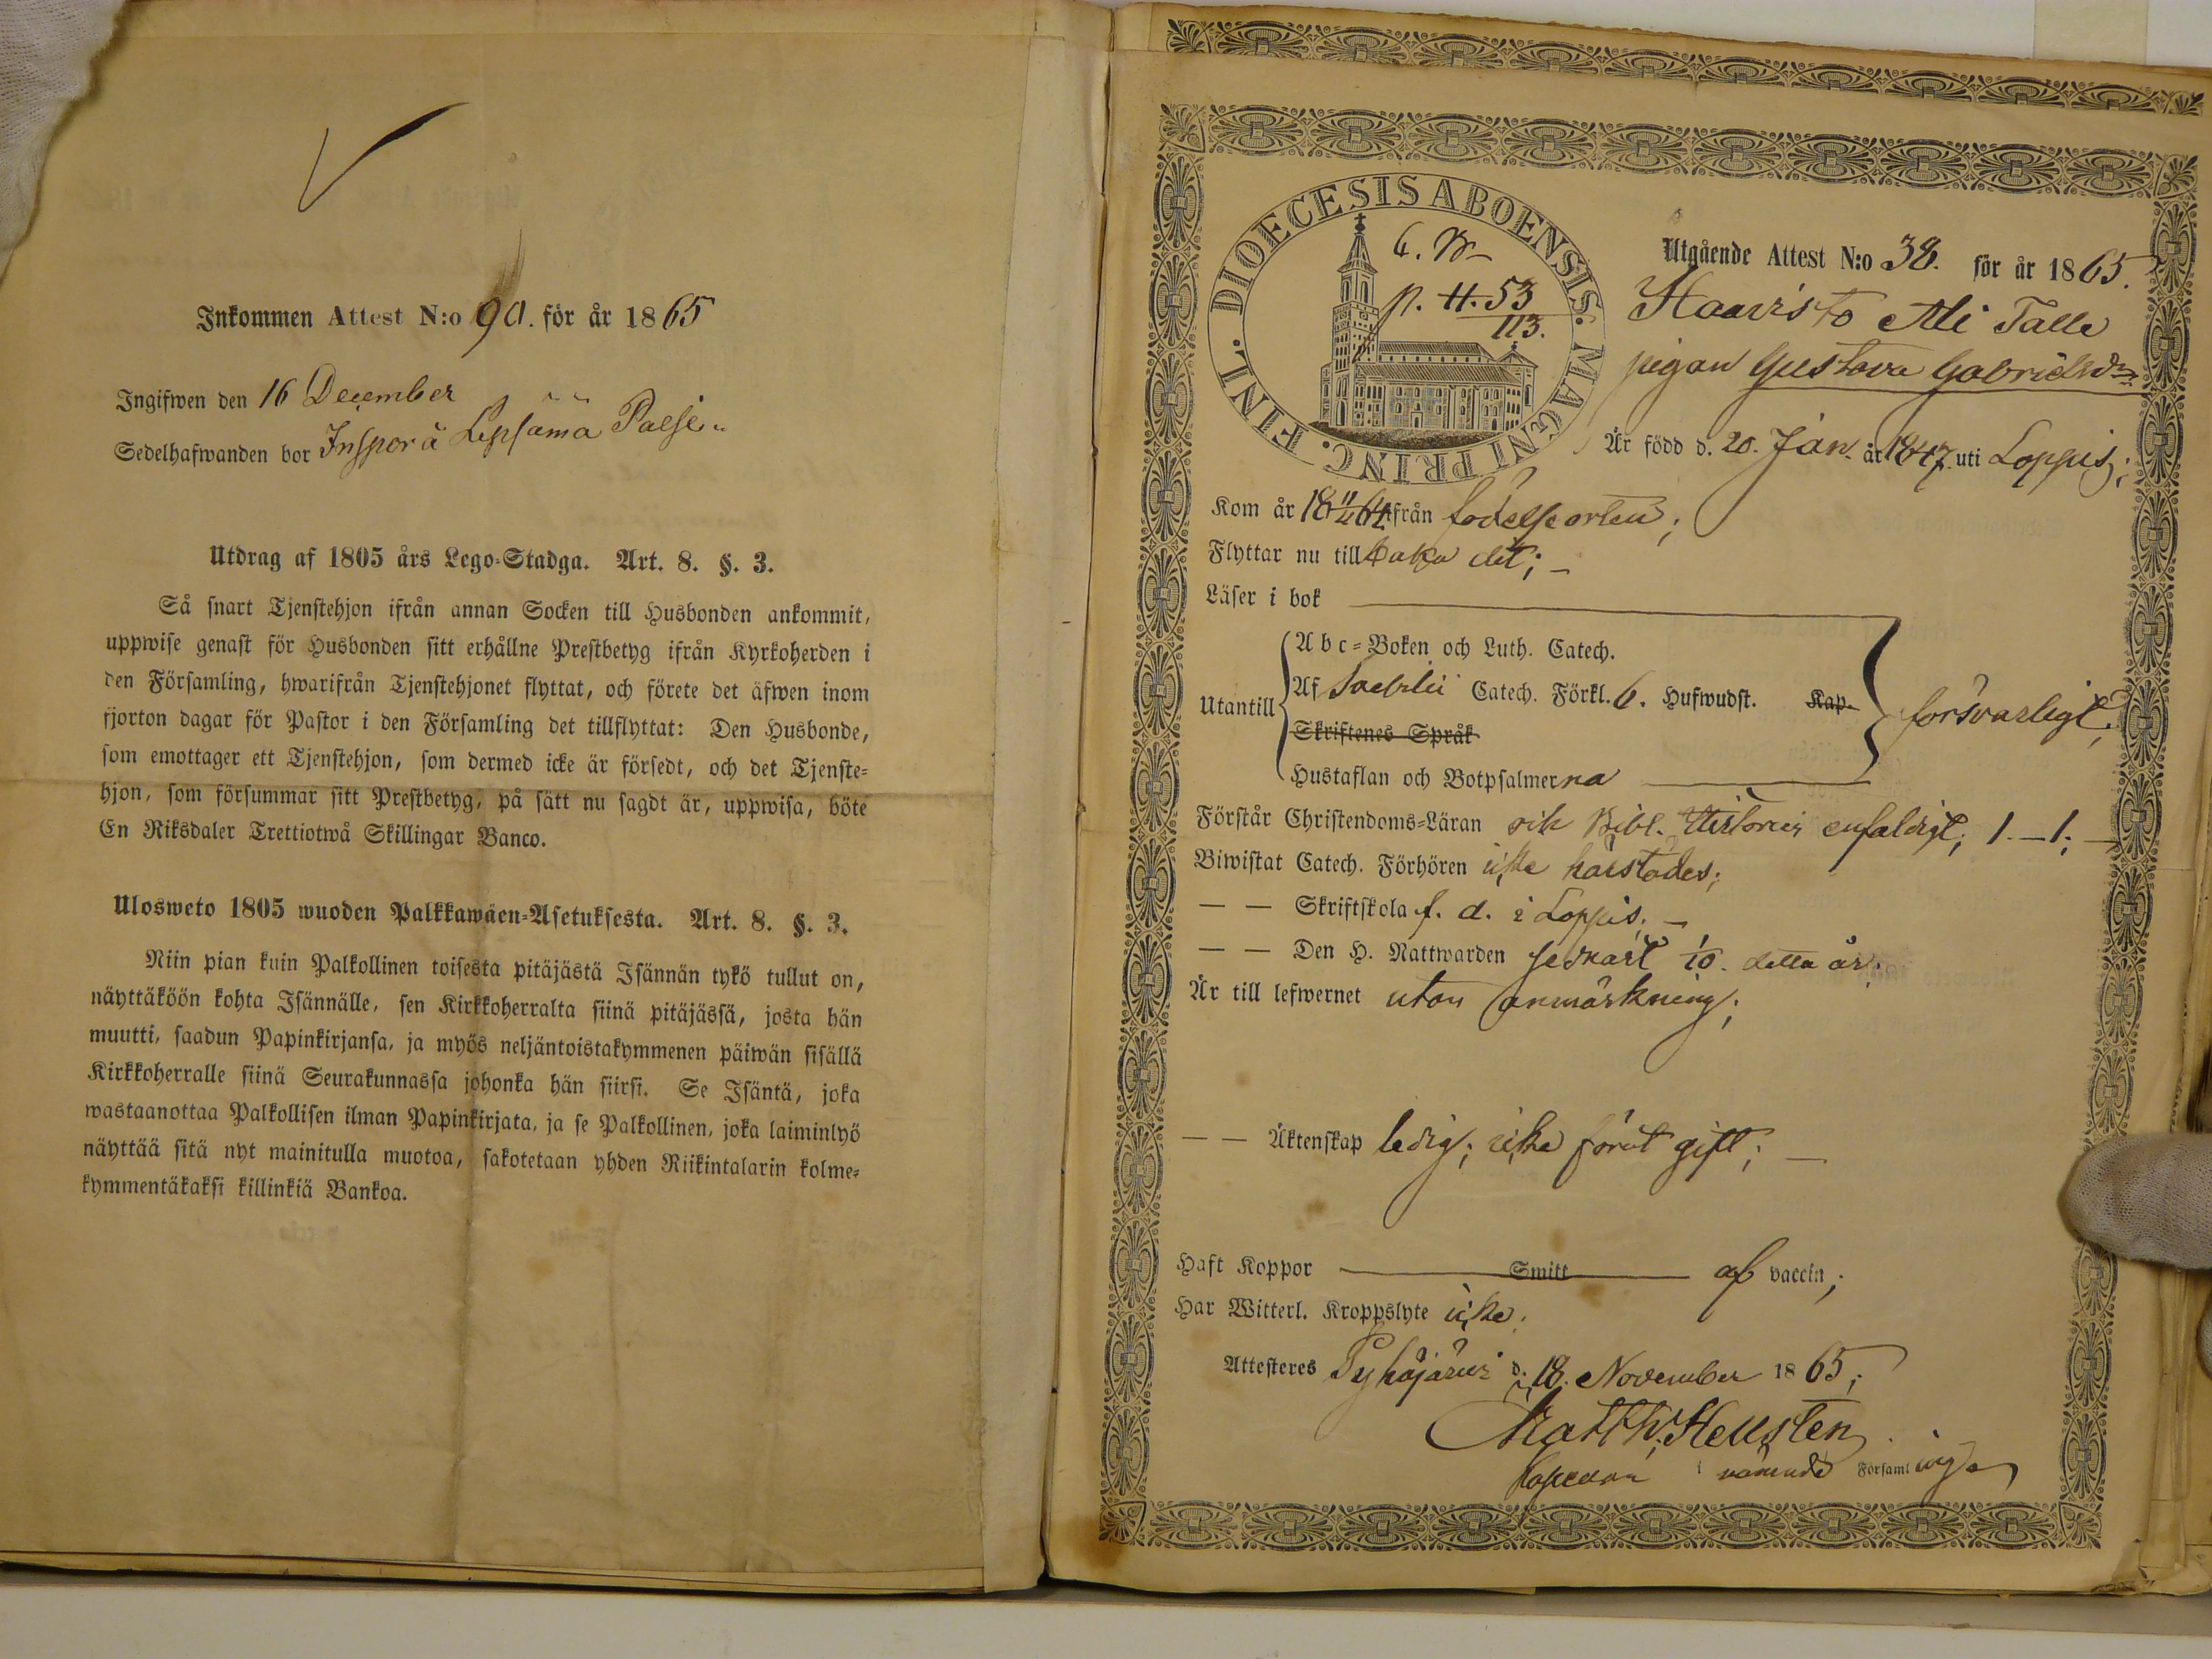 Inkommen Attest N:o 90. för år 1865
Ingifwen den 16 December
Sedelhafwanden bor Inspor å Lepsämä Palje
Utdrag af 1805 års Lego-Stadga. Art. 8. §. 3.
Så snart Tjenstehjon ifrån annan Socken till Husbonden ankommit,
uppwise genast för Husbonden sitt erhållne Prestbetyg ifrån Kyrkoherden i
den Församling, hwarifrån Tjenstehjonet flyttat, och förete det äfwen inom
fjorton dagar för Pastor i den Församling det tillflyttat: Den Husbonde,
som emottager ett Tjenstehjon, som dermed icke är försedt, och det Tjenste-
hjon, som försummar sitt Prestbetyg, på sätt nu sagdt är, uppwisa, böte
En Riksdaler Trettiotwå Skillingar Banco.
Ulosweto 1805 wuoden Palkkawäen-Asetuksesta. Art. 8. §. 3.
Niin pian kuin Palkollinen toisesta pitäjästä Isännän tykö tullut on,
näyttäköön kohta Isännälle, sen Kirkkoherralta siinä pitäjässä, josta hän
muutti, saadun Papinkirjansa, ja myös neljäntoistakymmenen päiwän sisällä
Kirkkoherralle siinä Seurakunnassa johonka hän siirsi. Se Isäntä, joka
wastaanottaa Palkollisen ilman Papinkirjata, ja se Palkollinen, joka laiminlyö
näyttää sitä nyt mainitulla muotoa, sakotetaan yhden Riikintalarin kolme-
kymmentäkaksi killinkiä Bankoa.
DIOECESIS ABOENSIS. MAGNI PRINC. FINL.
p. 53
113.
Utgående Attest N:o 38. för år 1865.
Haavisto Ali Talle
pigan Gustava Gabrielsdr
Är född d. 20. Jan. år 1847. uti Loppis;
Kom år 18 11/11 64 från födelseorten;
Flyttar nu tillbaka dit; —
Läser i bok
Utantill
Abc-Boken och Luth. Catech.
Af Svebilii Catech. Förkl. 6. Hufwudst. Kap.
Skriftenes Språk
Hustaflan och Botpsalmerna
försvarligt;
Förstår Christendoms-Läran och Bibl. Historien enfaldigt; 1. — 1; —
Biwistat Catech. Förhören icke härstädes;
— — Skriftskola f. d. i Loppis; —
— — Den H. Nattwarden sednast 1/10. detta år;
Är till lefwernet utan anmärkning;
— — Äktenskap ledig; icke förut gift; —
Haft Koppor Smitt af vaccin;
Har Witterl. Kroppslyte icke;
Attesteres Pyhäjärvi d. 18. November 1865;
Matth. Hellsten
Kapellan i närande Församlingen